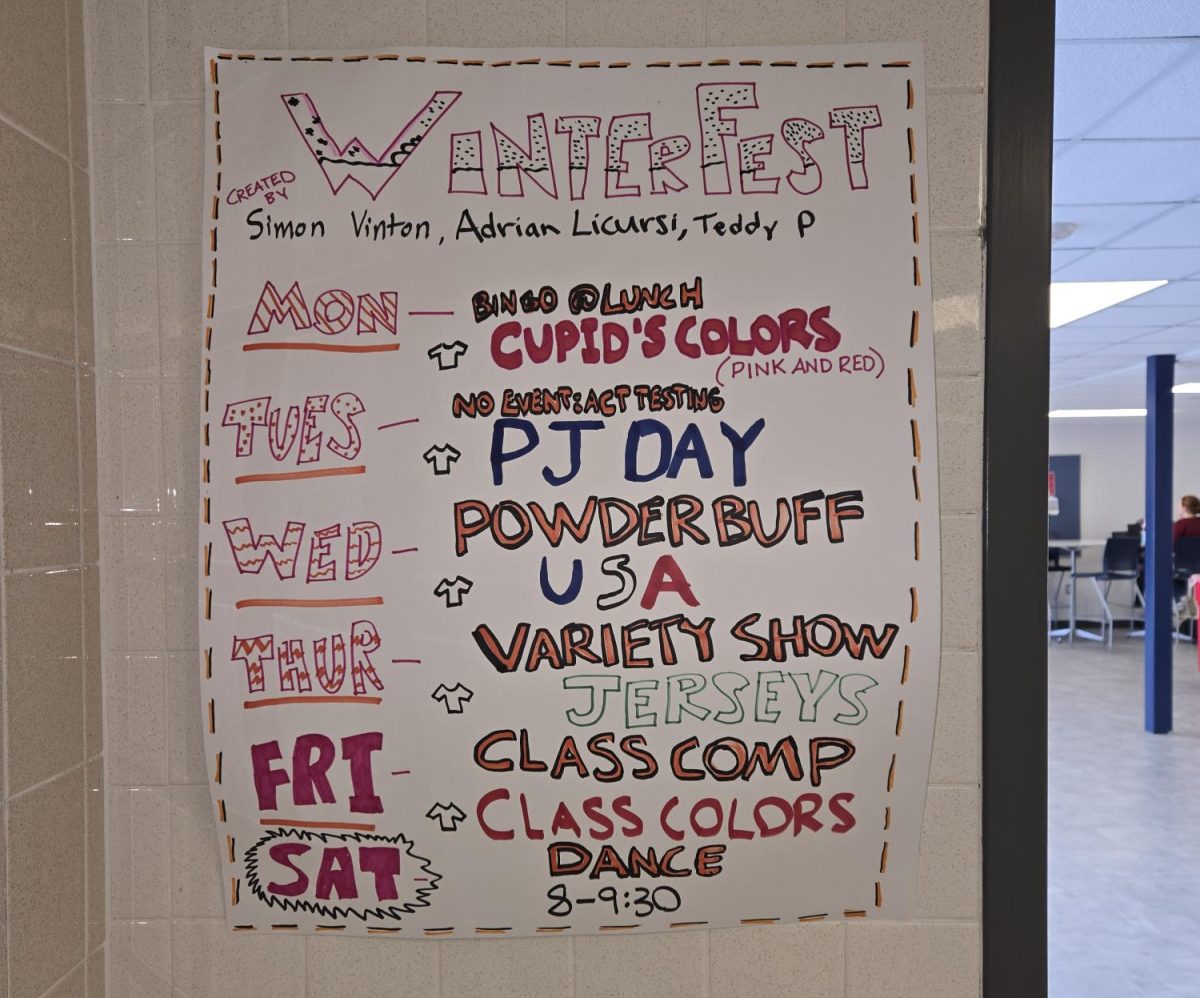 WINTERFEST
CREATED BY
Simon Vinton, Adrian Licursi, Teddy P
MON — BINGO @ LUNCH
CUPID'S COLORS
(PINK AND RED)
TUES — NO EVENT: ACT TESTING
PJ DAY
WED — POWDERBUFF
USA
THUR — VARIETY SHOW
JERSEYS
FRI — CLASS COMP
CLASS COLORS
SAT - DANCE
8-9:30